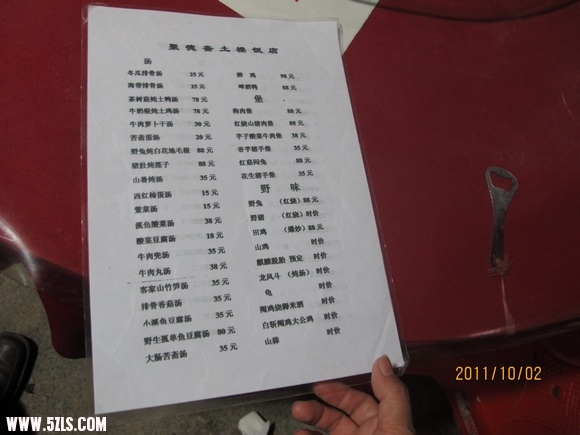 聚德斋土楼饭店
汤
冬瓜排骨汤 25元
海带排骨汤 25元
茶树菇炖土鸭汤 78元
牛奶根炖土鸡汤 78元
牛肉萝卜干汤 30元
苦斋蛋汤 20元
野兔炖白花地毛根 88元
猪肚炖莲子 88元
山兽炖汤 35元
西红柿蛋汤 15元
紫菜汤 15元
溪鱼酸菜汤 38元
酸菜豆腐汤 18元
牛肉兜汤 35元
牛肉丸汤 38元
客家山竹笋汤 35元
排骨香菇汤 35元
小溪鱼豆腐汤 35元
野生孤单鱼豆腐汤 80元
大肠苦斋汤 35元
醉鸡 98元
啤酒鸭 88元
堡
狗肉堡 88元
红烧山猪肉堡 88元
芋子酸菜牛肉堡 38元
香芋猪手堡 35元
红菇闷兔 88元
花生猪手堡 35元
野味
野兔 (红烧) 88元
野猪 (红烧) 时价
田鸡 (爆炒) 88元
山鸡 时价
麒麟脱胎 预定 时价
龙凤斗 (炖汤) 时价
龟 时价
阉鸡烧脚米酒 时价
白斩阉鸡大公鸡 时价
山獐 时价
2011/10/02
www.5ZLS.com